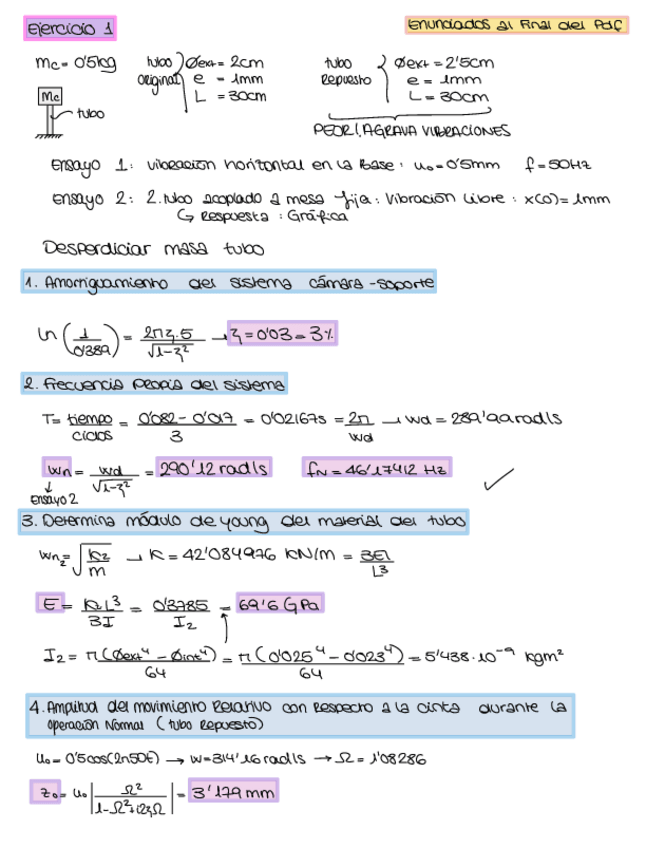 Ejercicio 1
Enunciados al Final del Pdf
mc = 0'5kg
Mc
tubo
tubo original
Øext = 2cm
e = 1mm
L = 30cm
tubo Repuesto
Øext = 2'5cm
e = 1mm
L = 30cm
PEOR!, AGRAVA VIBRACIONES
Ensayo 1: vibracion horitontal en la Base: u₀ = 0'5mm f = 50Hz
Ensayo 2: 2. tubo acoplado a mesa fija: Vibración Libre: x(0) = 1mm
↳ Respuesta: Gráfica
Desperdiciar masa tubo
1. Amortiguamiento del sistema cámara-soporte
Ln (1/0'389) = 2πξ·5/√1-ξ² → ξ = 0'03 = 3%
2. Frecuencia propia del sistema
T = tiempo/ciclos = 0'082 - 0'017/3 = 0'02167s = 2π/wd → wd = 289'99 rad/s
wn = wd/√1-ξ² = 290'12 rad/s fN = 46'17412 Hz ✓
↓
Ensayo 2
3. Determina módulo de young del material del tubo
wn₂ = √k₂/m → K = 42'084976 KN/m = 3EI/L³
E = k₂L³/3I = 0'3785/I₂ = 69'6 GPa
I₂ = π(Øext⁴ - Øint⁴)/64 = π(0'025⁴ - 0'023⁴)/64 = 5'438·10⁻⁹ kgm²
4. Amplitud del movimiento Relativo con Respecto a la cinta durante la
operación Normal (tubo Repuesto)
u₀ = 0'5cos(2π50t) → w = 314'16 rad/s → Ω = 1'08286
z₀ = u₀ |Ω²/1-Ω²+i2ξΩ| = 3'179 mm